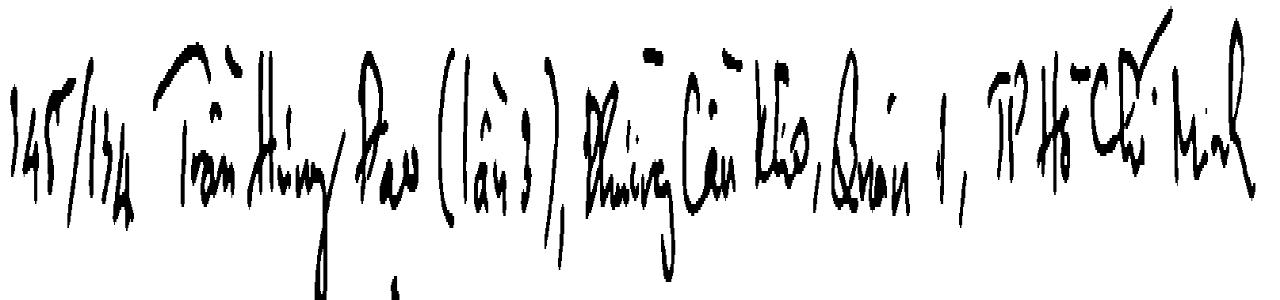 345/134 Trần Hưng Đạo (lầu 3), Phường Cầu Kho, Quận 1, TP Hồ Chí Minh